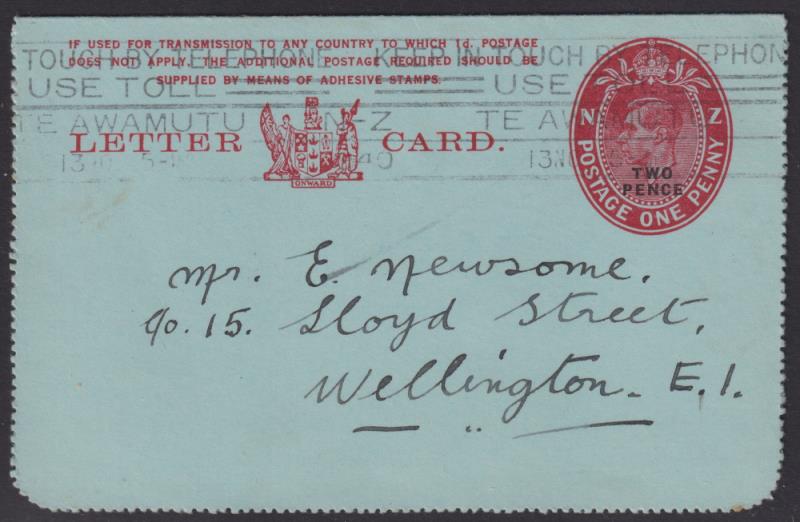 IF USED FOR TRANSMISSION TO ANY COUNTRY TO WHICH 1d. POSTAGE
DOES NOT APPLY, THE ADDITIONAL POSTAGE REQUIRED SHOULD BE
SUPPLIED BY MEANS OF ADHESIVE STAMPS.
TOUCH BY TELEPHONE KEEP IN TOUCH BY TELEPHON
USE TOLL USE
TE AWAMUTU N-Z TE AW
LETTER CARD.
ONWARD
13 5- 40 13NO
N Z
POSTAGE ONE PENNY
TWO
PENCE
Mr. E. Newsome.
c/o. 15. Lloyd Street,
Wellington. E.1.